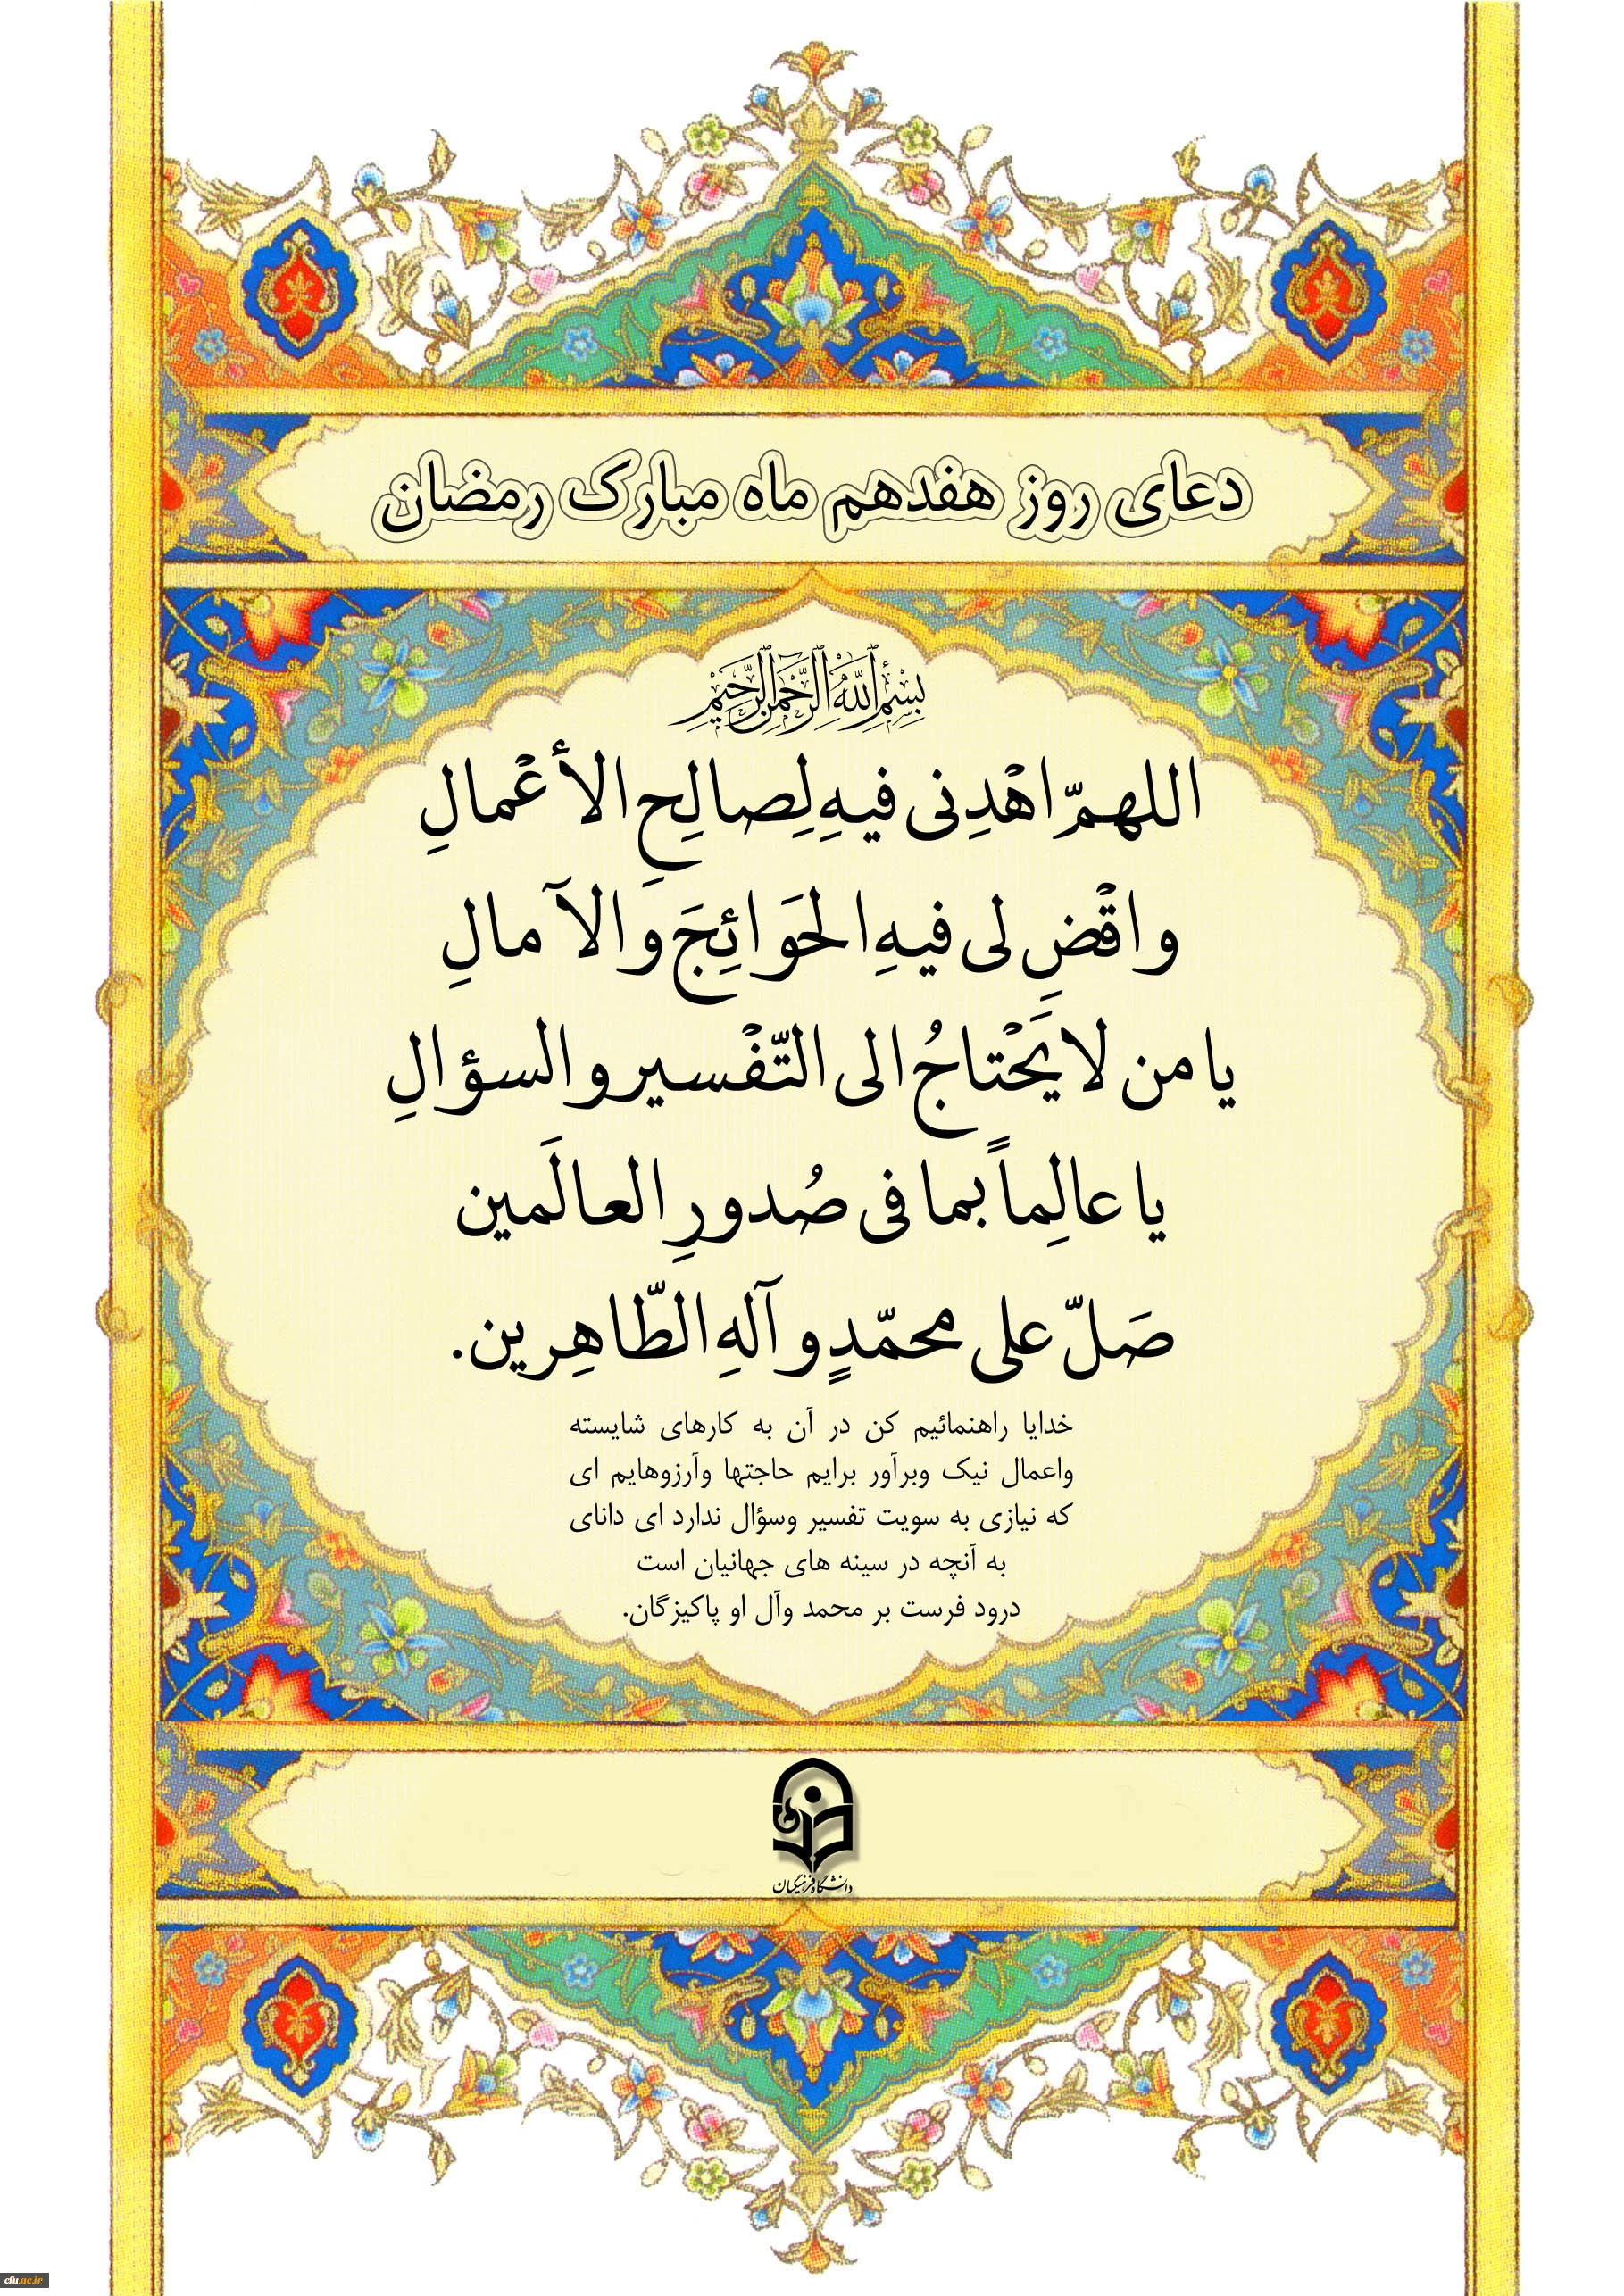 دعای روز هفدهم ماه مبارک رمضان
بِسْمِ ٱللَّهِ ٱلرَّحْمَٰنِ ٱلرَّحِيمِ
اللهمّ اهْدِنی فیهِ لِصالِحِ الأعْمالِ
واقْضِ لی فیهِ الحَوائِجَ والآمالِ
یا من لا یَحْتاجُ الی التّفْسیر والسؤالِ
یا عالِماً بما فی صُدورِ العالَمین
صَلّ علی محمّدٍ وآلهِ الطّاهِرین.
خدایا راهنمائیم کن در آن به کارهای شایسته
واعمال نیک وبرآور برایم حاجتها وآرزوهایم ای
که نیازی به سویت تفسیر وسؤال ندارد ای دانای
به آنچه در سینه های جهانیان است
درود فرست بر محمد وآل او پاکیزگان.
دانشگاه فرهنگیان
cfu.ac.ir